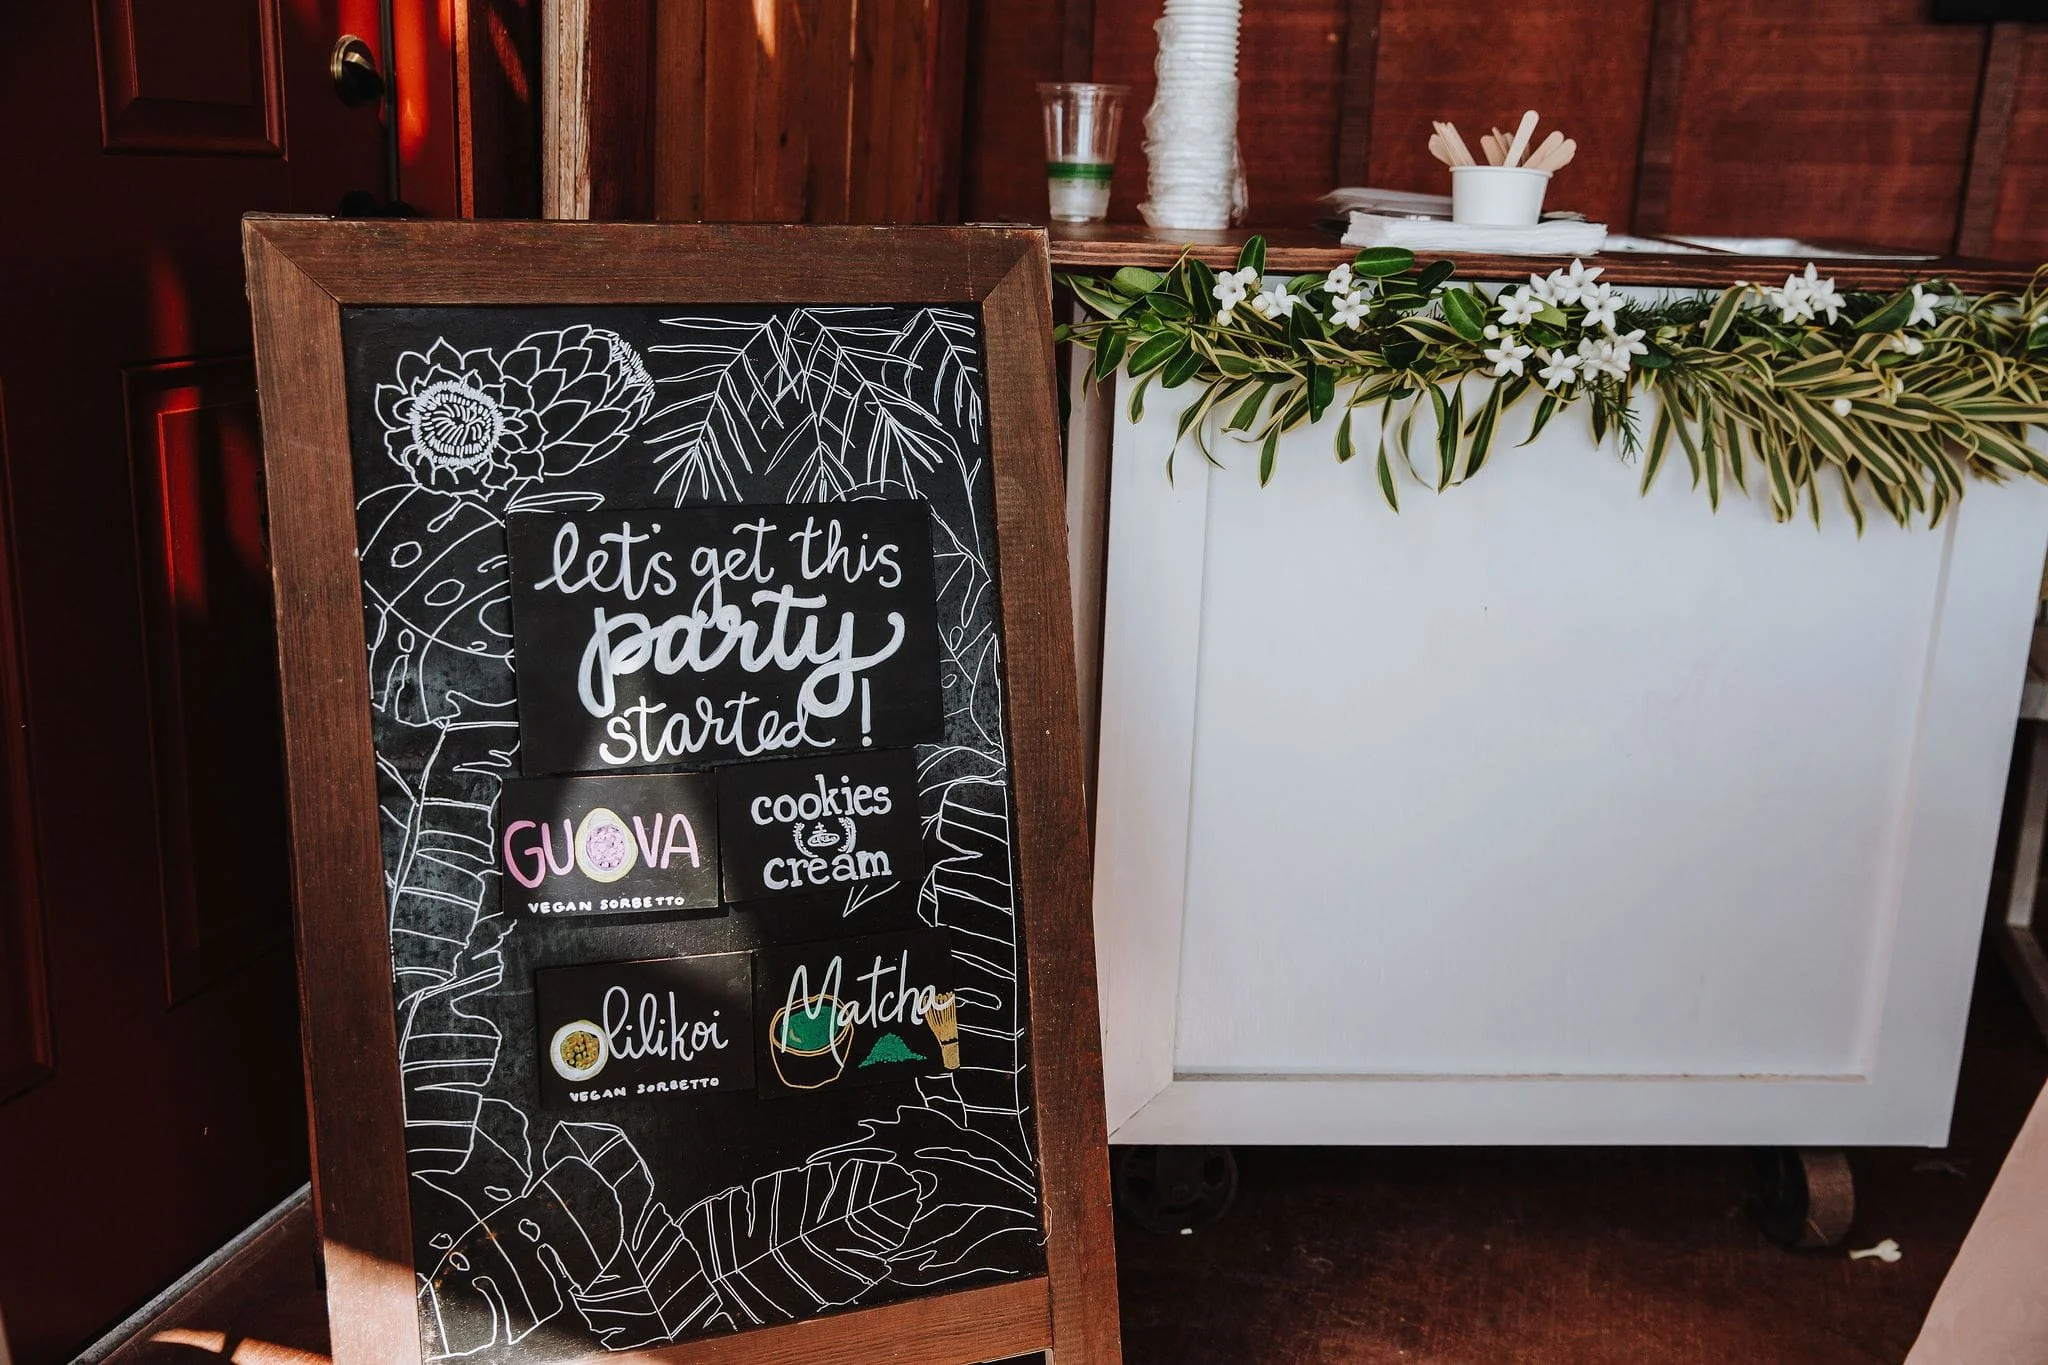 let's get this
party
started!
GUAVA
VEGAN SORBETTO
cookies
cream
lilikoi
VEGAN SORBETTO
Matcha